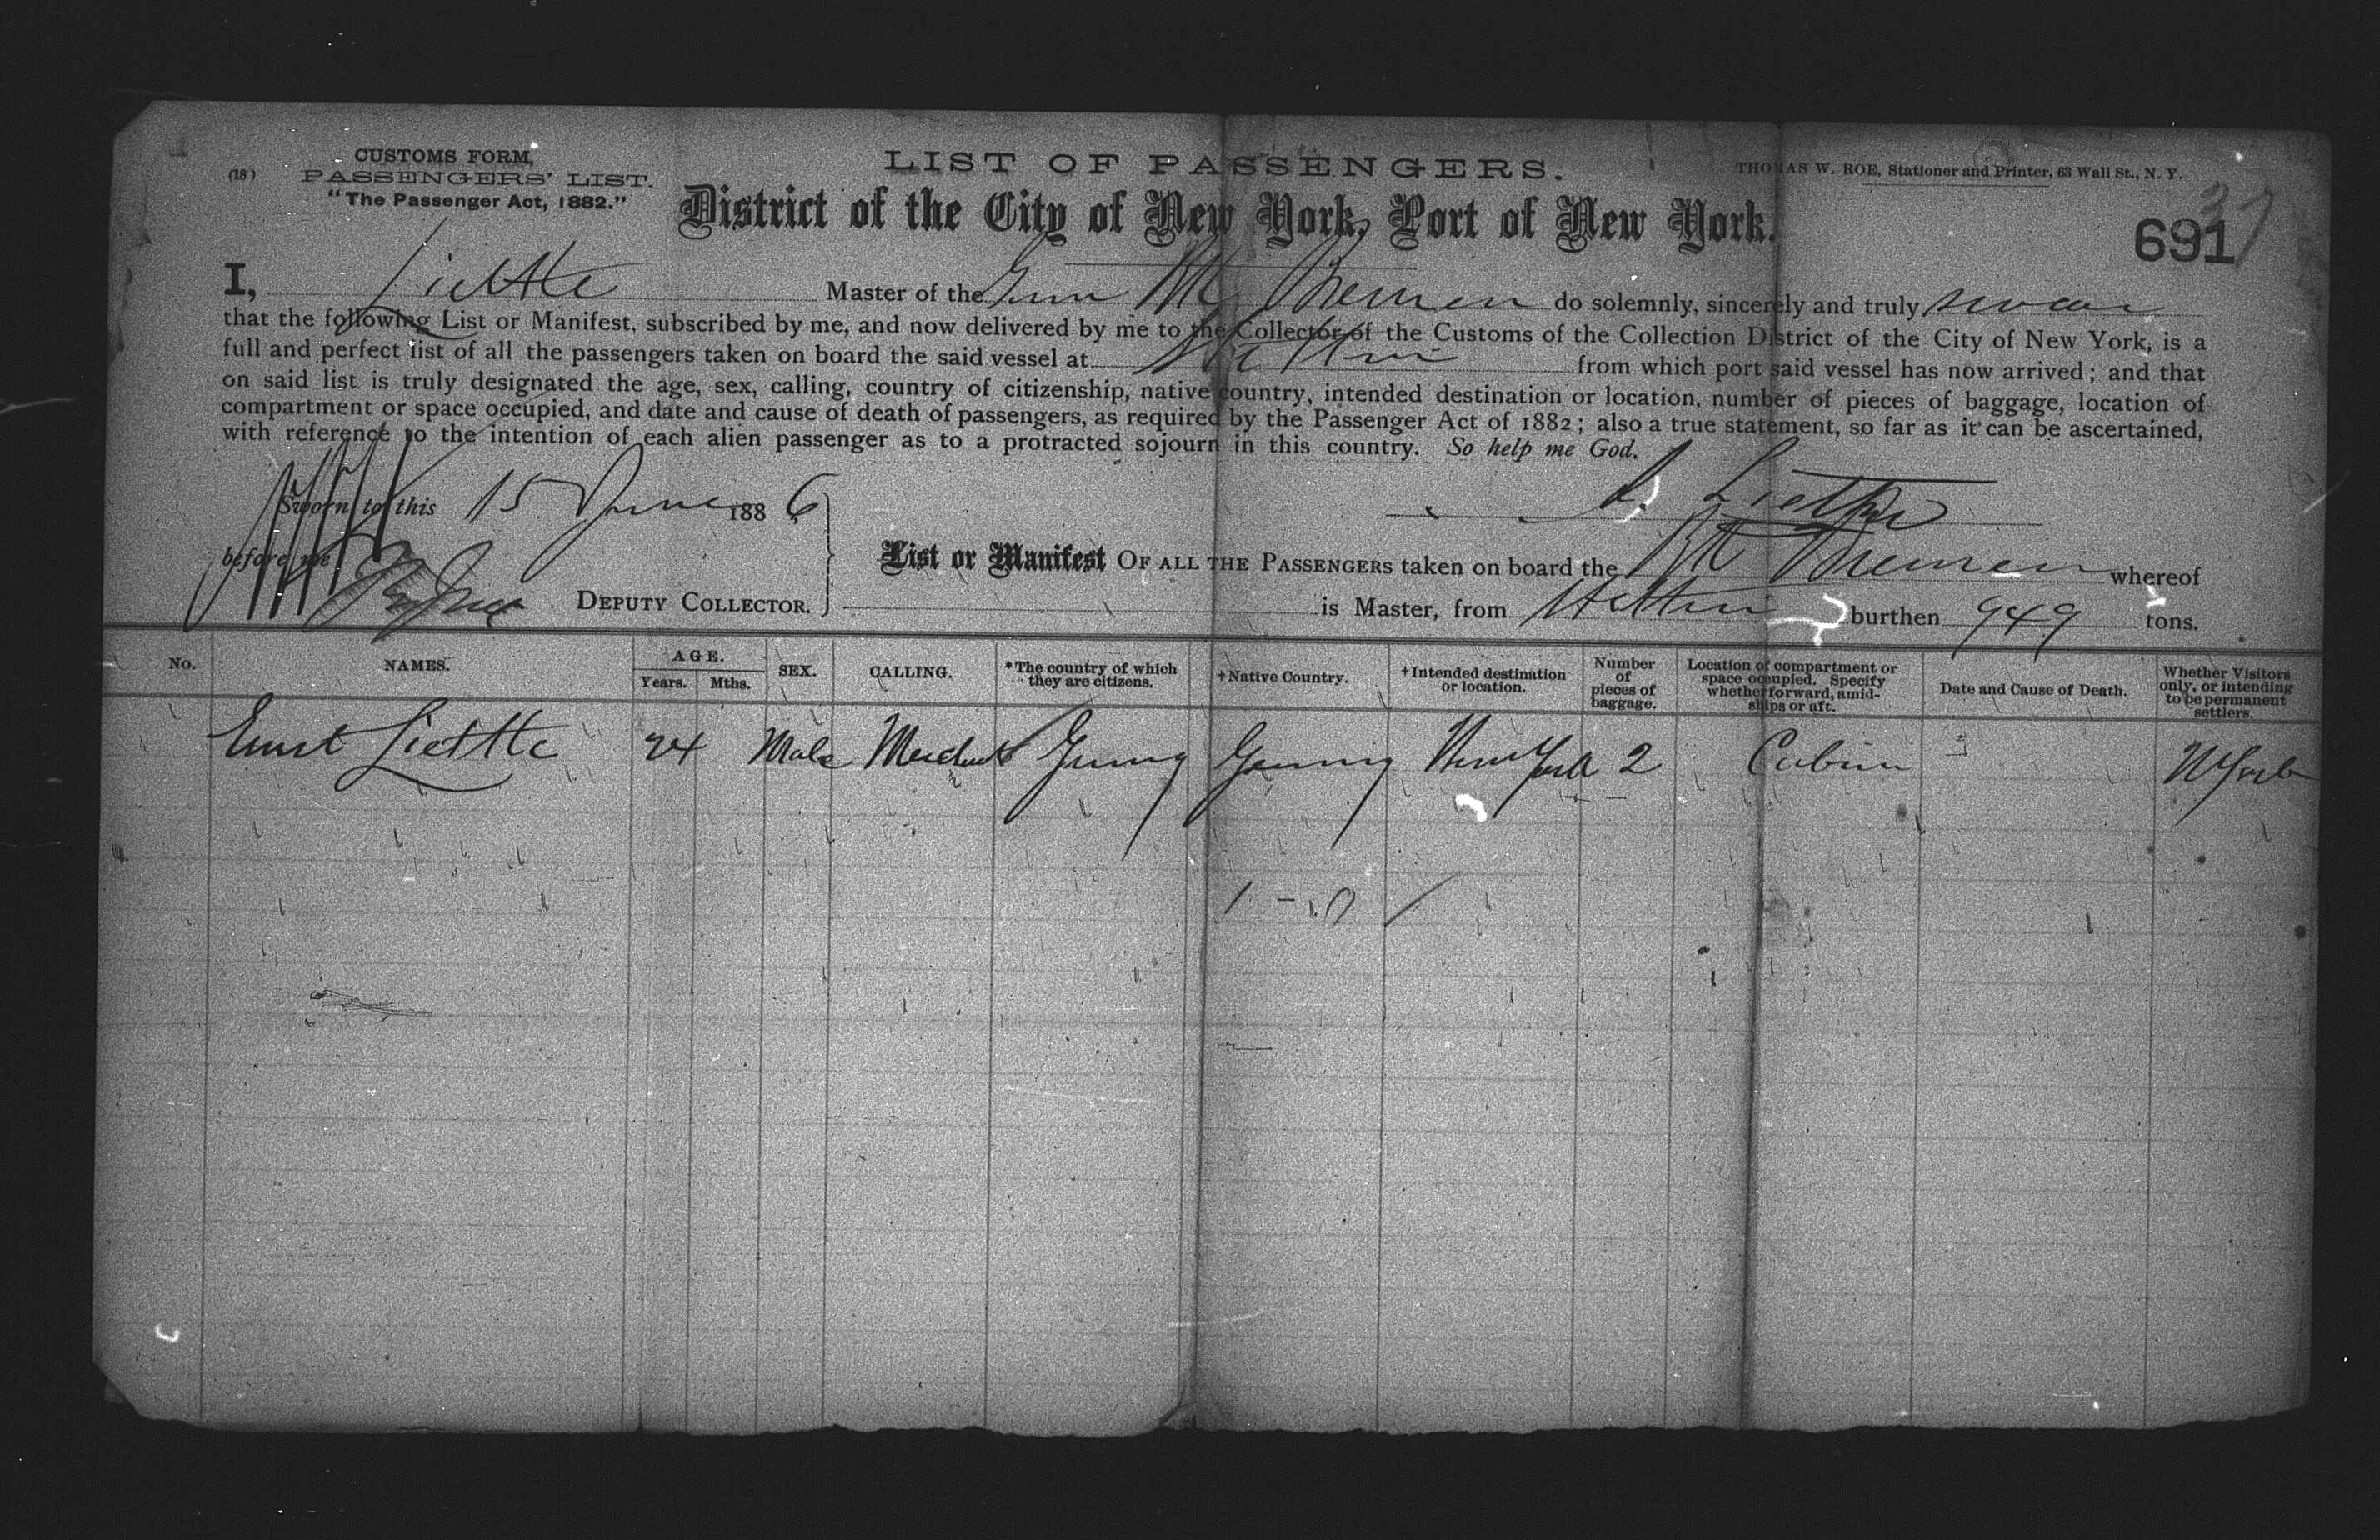 CUSTOMS FORM,
(18) PASSENGERS' LIST.
"The Passenger Act, 1882."
LIST OF PASSENGERS.
THOMAS W. ROE, Stationer and Printer, 63 Wall St., N. Y.
District of the City of New York, Port of New York.
37
691
I, Liettke Master of the Bk Bremen do solemnly, sincerely and truly swear
that the following List or Manifest, subscribed by me, and now delivered by me to the Collector of the Customs of the Collection District of the City of New York, is a
full and perfect list of all the passengers taken on board the said vessel at Stettin from which port said vessel has now arrived; and that
on said list is truly designated the age, sex, calling, country of citizenship, native country, intended destination or location, number of pieces of baggage, location of
compartment or space occupied, and date and cause of death of passengers, as required by the Passenger Act of 1882; also a true statement, so far as it can be ascertained,
with reference to the intention of each alien passenger as to a protracted sojourn in this country. So help me God.
Sworn to this 15 June 1886
before me
DEPUTY COLLECTOR.
List or Manifest OF ALL THE PASSENGERS taken on board the Bk Bremen whereof
is Master, from Stettin burthen 949 tons.
No. NAMES. AGE. Years. Mths. SEX. CALLING. *The country of which they are citizens. †Native Country. †Intended destination or location. Number of pieces of baggage. Location of compartment or space occupied. Specify whether forward, amidships or aft. Date and Cause of Death. Whether Visitors only, or intending to be permanent settlers.
Ernst Liettke 24 Male Merchant Germy Germy New York 2 Cabin NYork